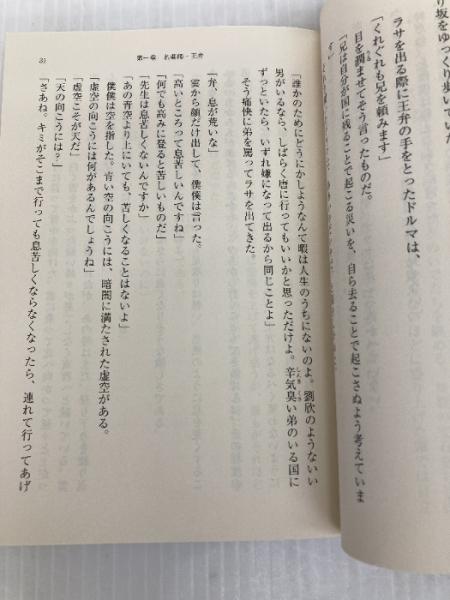 り坂をゆっくり歩いていた
ラサを出る際に王弁の手をとったドルマは、
「くれぐれも兄を頼みます」
目を潤ませてそう言ったものだ。
「兄は自分が国に残ることで起こる災いを、自ら去ることで起こさぬよう考えていま
す」
第一章 王弁
「誰かのためにどうにかしようなんて暇は人生のうちにないのよ。劉欣のようないい
男がいるなら、しばらく唐に行ってもいいかと思っただけよ。辛気臭い弟のいる国に
ずっといたら、いずれ嫌になって出るから同じことよ」
そう痛快に弟を罵ってラサを出てきた。
「弁、息が荒いな」
雲から顔だけ出して、僕僕は言った。
「高いところって息苦しいんですね」
「何でも高みに登ると苦しいものだ」
「先生は息苦しくないんですか」
「あの青空より上にいても、苦しくなることはないよ」
僕僕は空を指した。青い空の向こうには、暗闇に満たされた虚空がある。
「虚空の向こうには何があるんでしょうね」
「虚空こそが天だ」
「天の向こうには？」
「さあね。キミがそこまで行っても息苦しくならなくなったら、連れて行ってあげ